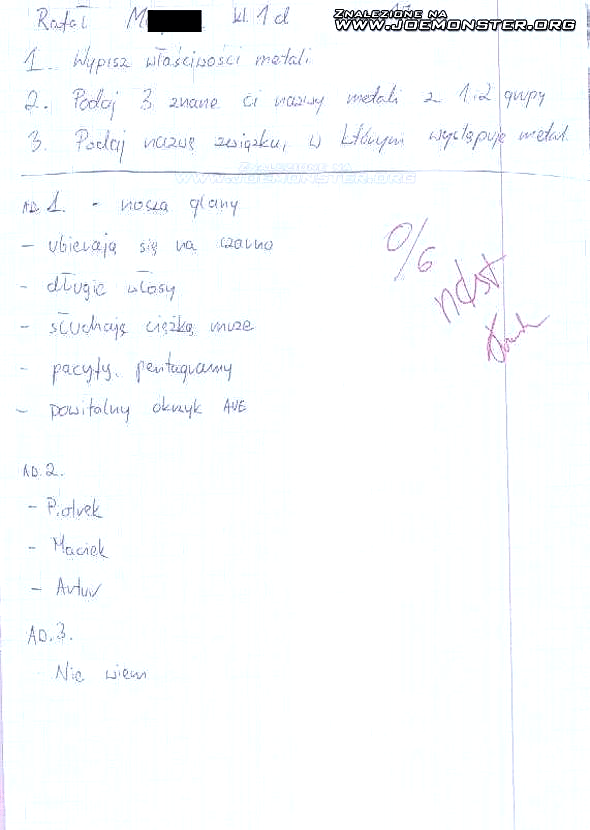 Rafał M kl. 1d
ZNALEZIONE NA
WWW.JOEMONSTER.ORG
1. Wypisz właściwości metali
2. Podaj 3 znane ci nazwy metali z 1 i 2 grupy
3. Podaj nazwę związku, w którym występuje metal.
ZNALEZIONE NA
WWW.JOEMONSTER.ORG
AD. 1. - noszą glany
- ubierają się na czarno
- długie włosy
- słuchają ciężką muze
- pacyfy, pentagramy
- powitalny okrzyk AVE
0/6
ndst
AD. 2.
- Piotrek
- Maciek
- Artur
AD. 3.
Nie wiem